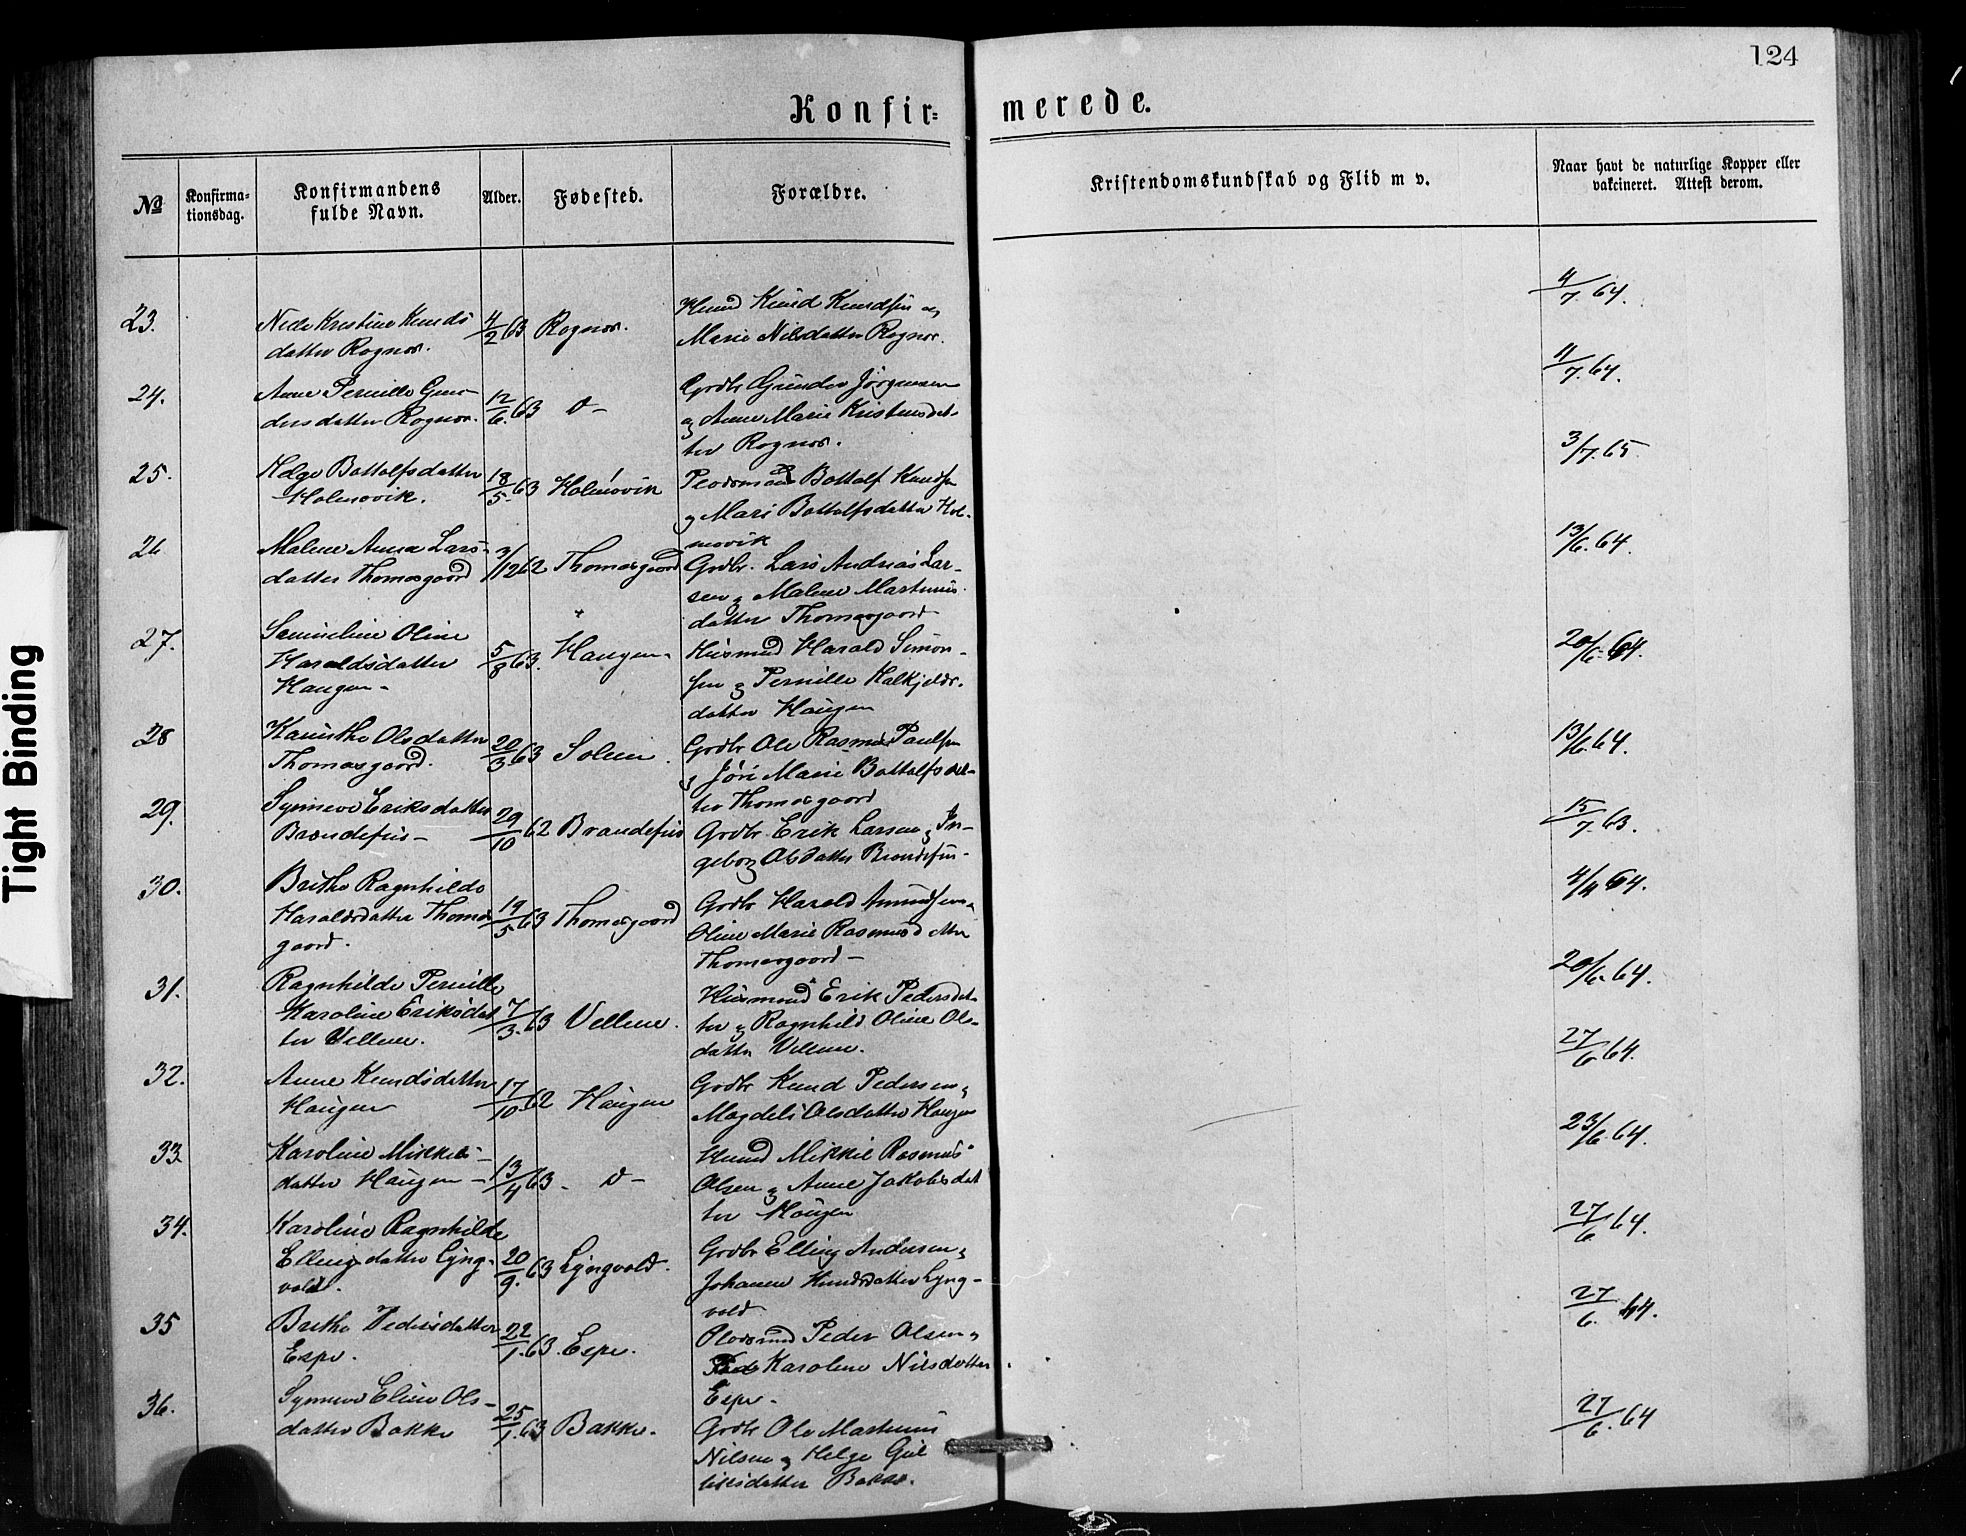 124
Konfir=
merede.
No
Konfirma-
tionsdag.
Konfirmandens
fulde Navn.
Alder.
Fødested.
Forældre.
Kristendomskundskab og Flid m v.
Naar havt de naturlige Kopper eller
vakcineret. Attest derom.
23.
Kristine Knuds
datter Rognør.
4/2 63 Rognør.
Knud Knudsen og
Marie Nilsdatter Rognør.
4/7 64.
24.
Anne Pernille Gun-
dersdatter Rognør.
12/6. 63 D-
Grdbr Gunder Jørgensen
og Anne Marie Kristensdat-
ter Rognør.
11/7. 64.
25.
Helge Bottolfsdatter
Holmøvik.
18/5. 63 Holmøvik
Bottolf Knudsen
og Mari Bottolfsdatter Hol-
møvik
3/7. 65
26
Malene Anna Lars-
datter Thomasgaard
3/12 62 Thomasgaard
Grdbr. Lars Andreas Lar-
sen og Malene Martinus-
datter Thomasgaard
13/6. 64.
27.
Samueline Oline
Haraldsdatter
Haugen-
5/8 63. Haugen-
Husmd Harald Simon-
sen og Pernille Halkjelds-
datter Haugen
20/6. 64.
28
Olsdatter
Thomasgaard.
20/3 63 Solem.
Grdbr Ole Rasmus Paulsen
og Jøri Marie Bottolfsdat-
ter Thomasgaard
13/6 64.
29.
Synneve Eriksdatter
Brandefur-
29/10 62 Brandefur
Grdbr. Erik Larsen og In-
geborg Olsdatter Brandefur-
15/7. 63.
30.
Brithe Ragnhilde
Haraldsdatter Thomas
gaard.
19/5 63 Thomasgaard
Grdbr Harald Amundsen og
Oline Marie Rasmusdatter
Thomasgaard-
4/4 64.
31.
Ragnhilde Pernille
Karoline Eriksdat
ter Vellene.
7/3. 63 Vellene.
Husmand Erik Pedersdat-
ter og Ragnhild Oline Ols-
datter Vellene.
20/6. 64.
32.
Anne Knudsdatter
Haugen
17/10. 62 Haugen
Grdbr Knud Pedersen og
Magdeli Olsdatter Haugen
27/6 64.
33.
Karoline Mikkels-
datter Haugen-
13/4 63. D-
Husmd Mikkel Rasmus
Olsen og Anne Jakobsdat
ter Haugen
23/6. 64.
34.
Karoline Ragnhilde
Ellingsdatter Lyng-
vold.
20/9. 63 Lyngvold.
Grdbr Elling Andersen og
Johanne Knudsdatter Lyng-
vold
27/6 64.
35
Brithe Pedersdatter
Espe.
22/1. 63. Espe.
Pladsmd Peder Olsen og
Karoline Nilsdatter
Espe.
27/6. 64.
36.
Synneve Eline Ols-
datter Bakke
25/1. 63 Bakke.
Grdbr Ole Martinus
Nilsen og Helge Gul
liksdatter Bakke.
27/6. 64
Tight Binding